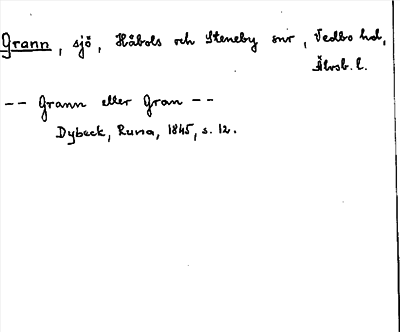 Grann, sjö, Håbols och Steneby snr, Vedbo hd,
Älvsb. l.
-- Grann eller Gran --
Dybeck, Runa, 1845, s. 12.